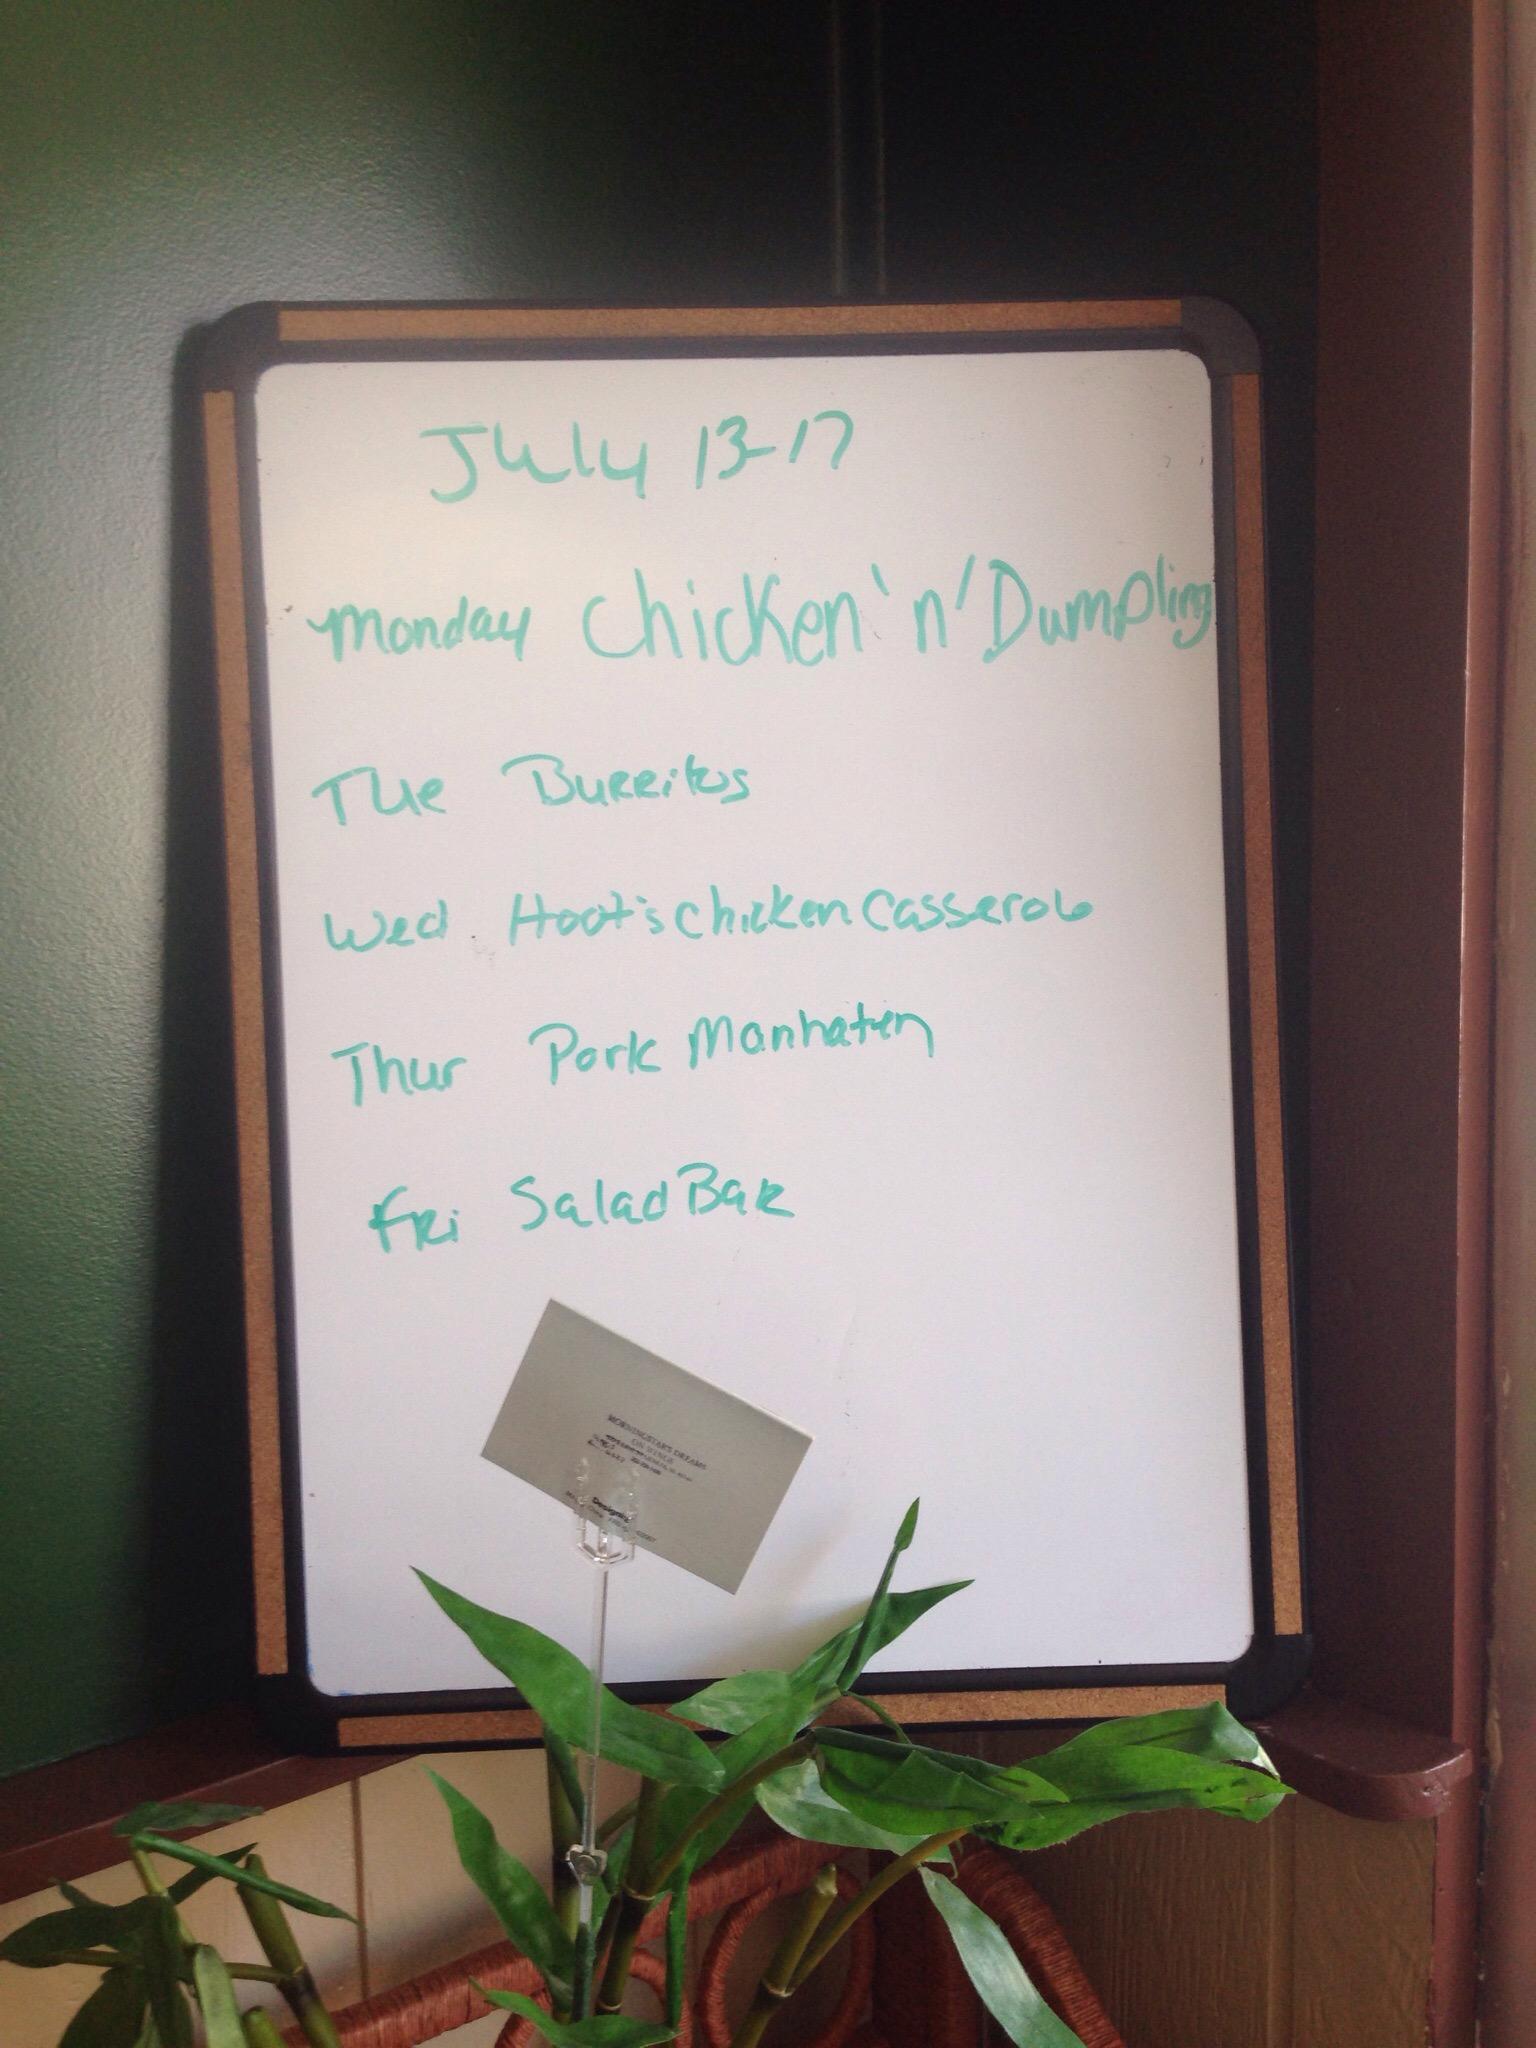 July 13-17
Monday Chicken 'n' Dumpling
Tue Burritos
Wed Hoot's Chicken Casserole
Thur Pork Manhatten
Fri Salad Bar
MORNINGSTAR'S DREAMS
ON WINGS
Designer